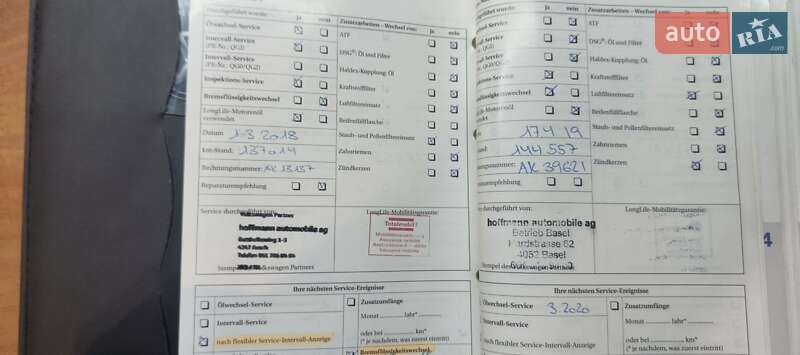 Durchgeführt wurde: ja nein Zusatzarbeiten - Wechsel von: ja nein
Ölwechsel-Service
Intervall-Service
(PR-Nr.: QG1)
Intervall-Service
(PR-Nr.: QG0/QG2)
Inspektions-Service
Bremsflüssigkeitswechsel
LongLife-Motorenöl
verwendet
Datum 1.3.2018
km-Stand: 137014
Rechnungsnummer: AK 13137
Reparaturempfehlung
ATF
DSG®: Öl und Filter
Haldex-Kupplung: Öl
Kraftstofffilter
Luftfiltereinsatz
Reifenfüllflasche
Staub- und Pollenfiltereinsatz
Zahnriemen
Zündkerzen
Service durchgeführt von: LongLife-Mobilitätsgarantie:
Volkswagen Partner
hoffmann automobile ag
4147 Aesch
Totalrevi
Stempel des Volkswagen Partners
Ihre nächsten Service-Ereignisse
Ölwechsel-Service
Intervall-Service
nach flexibler Service-Intervall-Anzeige
Zusatzumfänge
Monat Jahr*
oder bei km*
(* je nachdem, was zuerst eintritt)
Bremsflüssigkeitswechsel
Durchgeführt wurde: ja nein Zusatzarbeiten - Wechsel von: ja nein
17.4.19
144 557
AK 39621
ATF
DSG®: Öl und Filter
Haldex-Kupplung: Öl
Kraftstofffilter
Luftfiltereinsatz
Reifenfüllflasche
Staub- und Pollenfiltereinsatz
Zahnriemen
Zündkerzen
durchgeführt von: LongLife-Mobilitätsgarantie:
hoffmann automobile ag
Betrieb Basel
Hardstrasse 62
4052 Basel
Stempel des Volkswagen Partners
4
Ihre nächsten Service-Ereignisse
Ölwechsel-Service 3.2020
Intervall-Service
nach flexibler Service-Intervall-Anzeige
Zusatzumfänge
Monat Jahr*
oder bei km*
(* je nachdem, was zuerst eintritt)
auto RIA .com